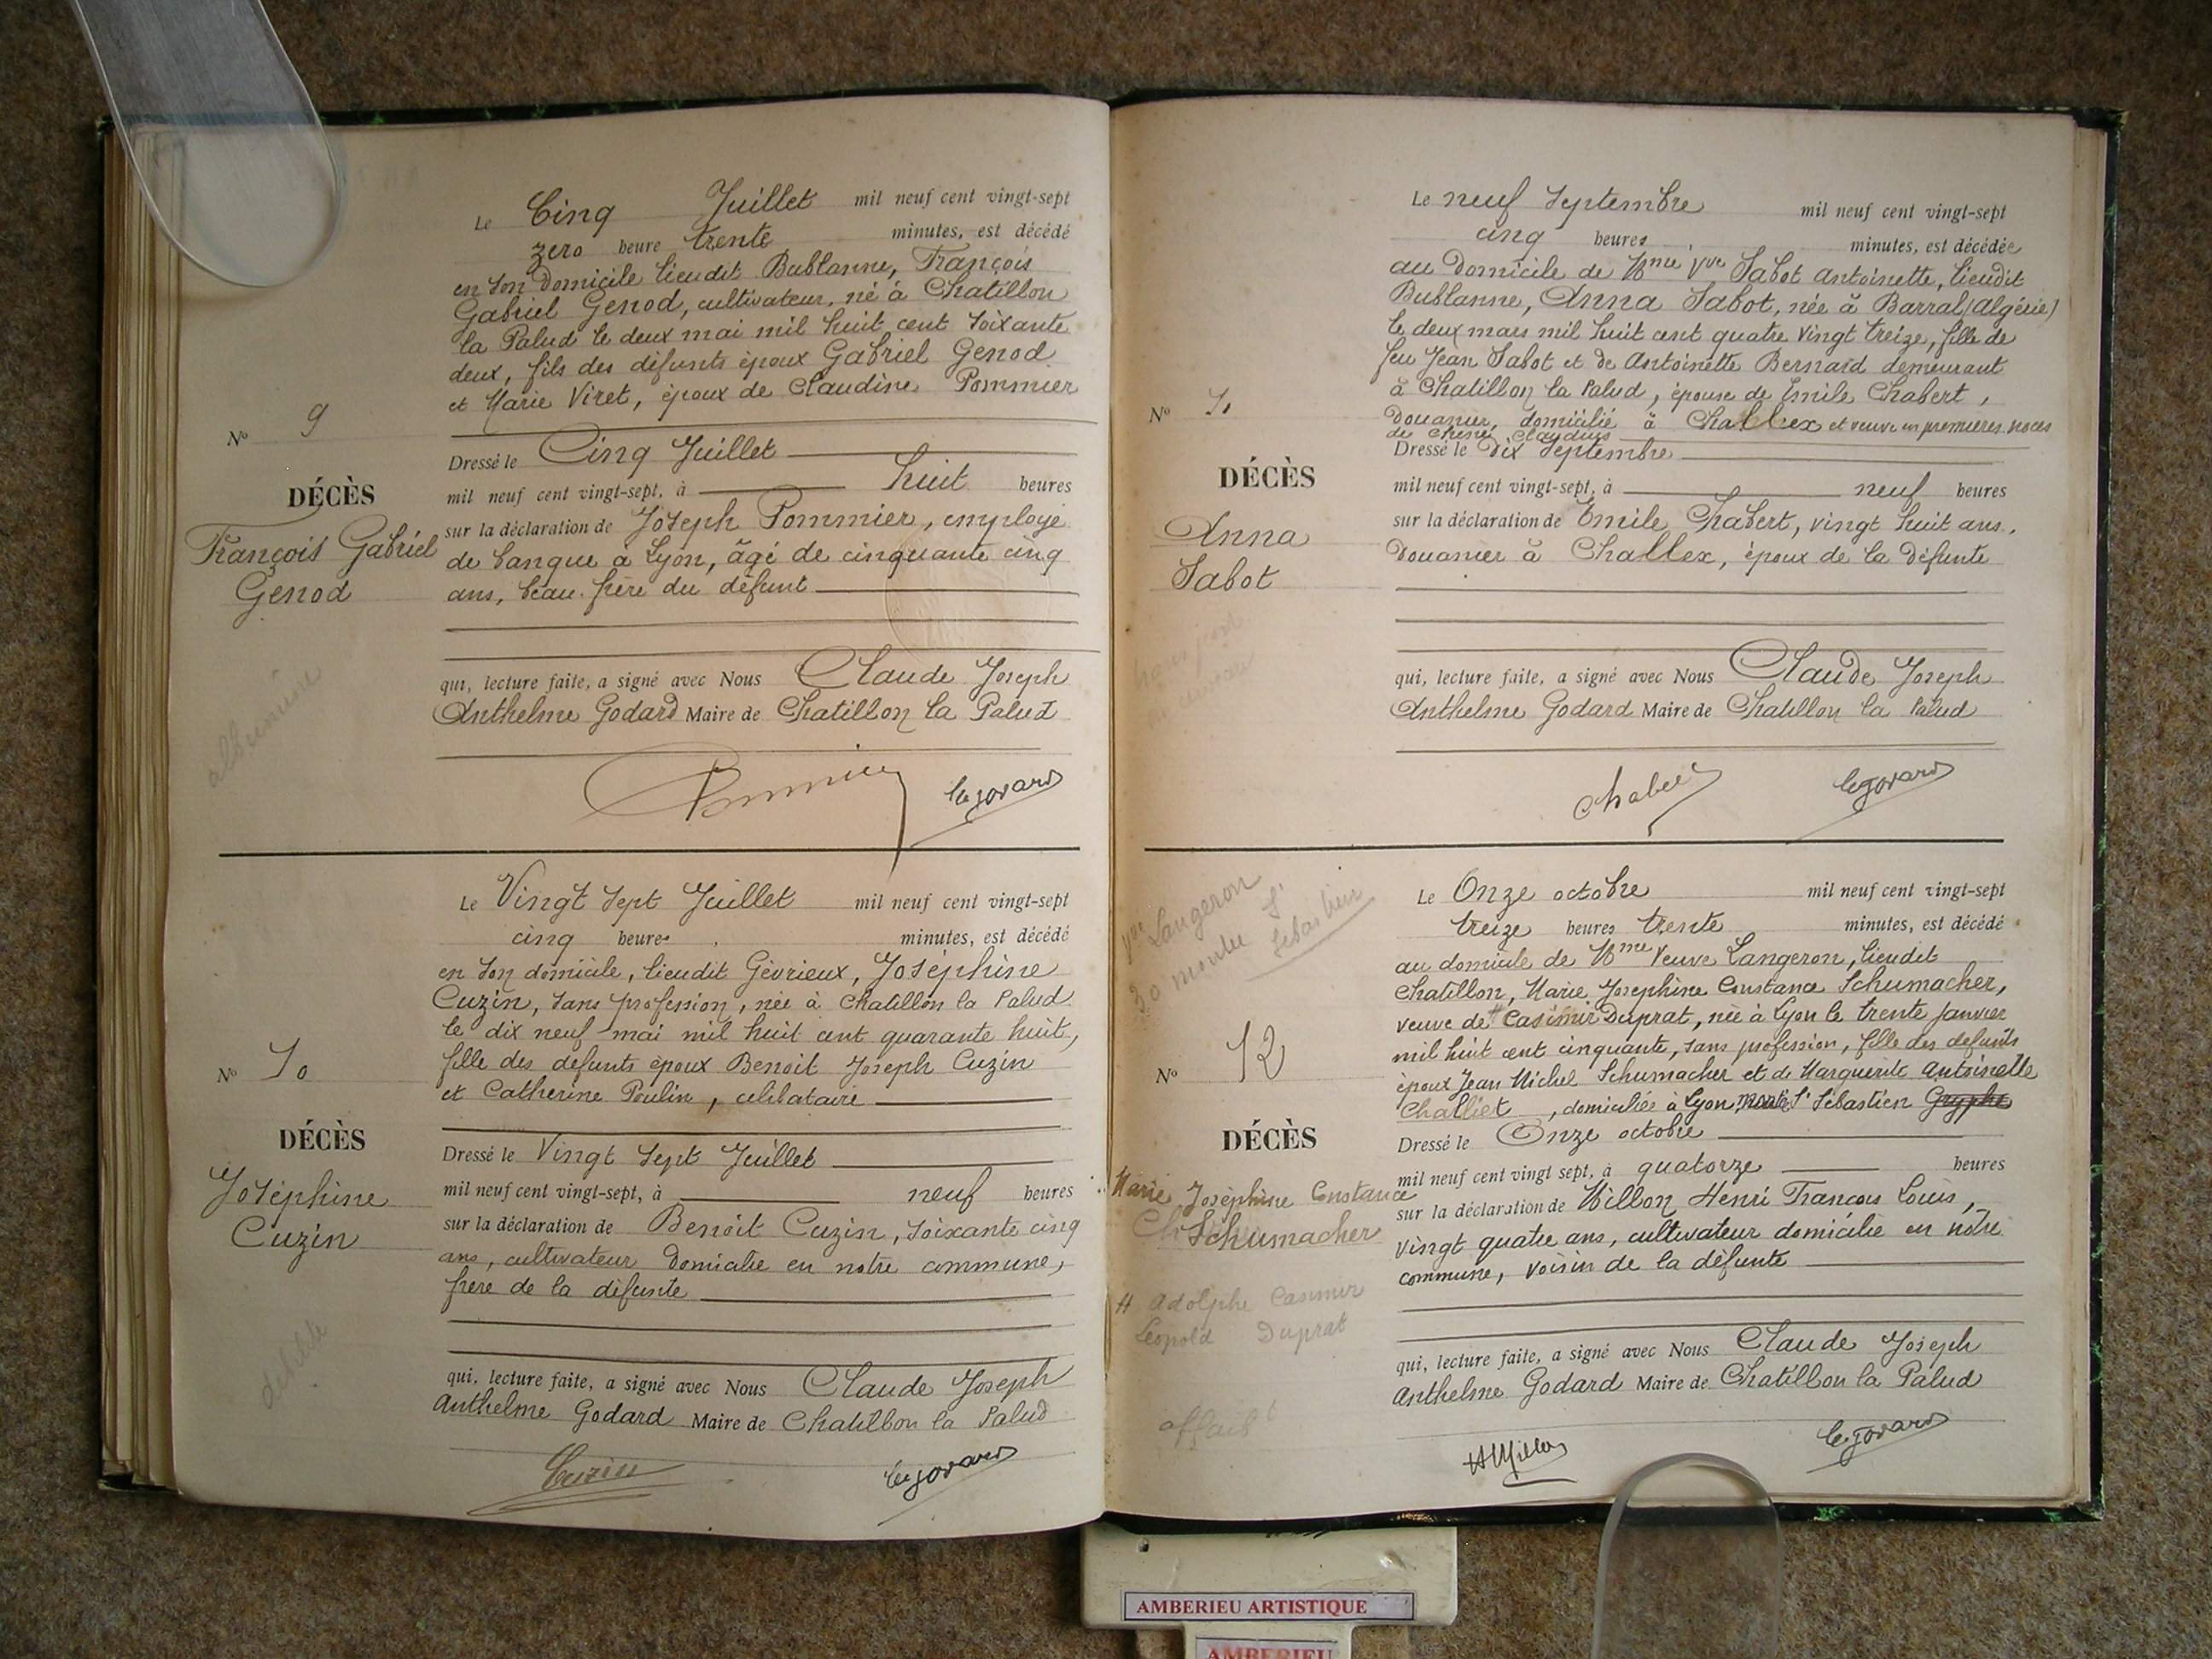 N° 9
DÉCÈS
François Gabriel
Genod
Le Cinq Juillet mil neuf cent vingt-sept
zero heure trente minutes, est décédé
en son domicile lieudit Bublanne, François
Gabriel Genod, cultivateur, né à Chatillon
la Palud le deux mai mil huit cent soixante
deux, fils des défunts époux Gabriel Genod
et Marie Viret, époux de Claudine Pommier
Dressé le Cinq Juillet
mil neuf cent vingt-sept, à huit heures
sur la déclaration de Joseph Pommier, employé
de banque à Lyon, âgé de cinquante cinq
ans, beau-frère du défunt
qui, lecture faite, a signé avec Nous Claude Joseph
Anthelme Godard Maire de Chatillon la Palud
N° 10
DÉCÈS
Joséphine
Cuzin
débile
Le Vingt sept Juillet mil neuf cent vingt-sept
cinq heures minutes, est décédé
en son domicile, lieudit Gévrieux, Joséphine
Cuzin, sans profession, née à Chatillon la Palud
le dix neuf mai mil huit cent quarante huit,
fille des défunts époux Benoit Joseph Cuzin
et Catherine Poulin, célibataire
Dressé le Vingt sept Juillet
mil neuf cent vingt-sept, à neuf heures
sur la déclaration de Benoît Cuzin, soixante cinq
ans, cultivateur domicilié en notre commune,
frère de la défunte
qui, lecture faite, a signé avec Nous Claude Joseph
Anthelme Godard Maire de Chatillon la Palud
Cuzin
N° 11
DÉCÈS
Anna
Sabot
Le neuf Septembre mil neuf cent vingt-sept
cinq heures minutes, est décédée
au domicile de Mme Vve Sabot Antoinette, lieudit
Bublanne, Anna Sabot, née à Barral (Algérie)
le deux mars mil huit cent quatre vingt treize, fille de
feu Jean Sabot et de Antoinette Bernard demeurant
à Chatillon la Palud, épouse de Emile Chabert,
douanier, domicilié à Challex et veuve en premières noces
de Chêne Claudius
Dressé le Dix Septembre
mil neuf cent vingt-sept, à neuf heures
sur la déclaration de Emile Chabert, vingt huit ans,
douanier à Challex, époux de la défunte
qui, lecture faite, a signé avec Nous Claude Joseph
Anthelme Godard Maire de Chatillon la Palud
Vve Langeron
30 montée St
Sébastien
N° 12
DÉCÈS
Marie Joséphine Constance
Schumacher
# Adolphe Casimir
Léopold Duprat
Le Onze octobre mil neuf cent vingt-sept
treize heures trente minutes, est décédé
au domicile de Mme Veuve Langeron, lieudit
Chatillon, Marie Josephine Constance Schumacher,
veuve de # Casimir Duprat, née à Lyon le trente Janvier
mil huit cent cinquante, sans profession, fille des défunts
époux Jean Michel Schumacher et de Marguerite Antoinette
Challiet, domiciliée à Lyon, montée St Sébastien Gryphe
Dressé le Onze octobre
mil neuf cent vingt sept, à quatorze heures
sur la déclaration de Millon Henri François Louis,
vingt quatre ans, cultivateur domicilié en notre
commune, voisin de la défunte
qui, lecture faite, a signé avec Nous Claude Joseph
Anthelme Godard Maire de Chatillon la Palud
AMBERIEU ARTISTIQUE
AMBERIEU